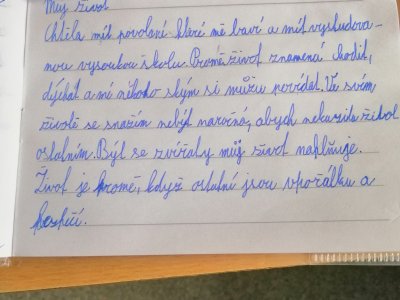 Můj život
Chtěla mít povolaní které mě baví a mít vystudova-
nou vysoukou školu. Promě život znamená chodit,
dýchat a mí někoho ským si můžu povídat. Ve svém
životě se snažím nebýt naročná, abych nekazila život
ostatním. Být se zvířaty můj život naplňuje.
Život je kromě, když ostatní jsou vpořádku a
bezpečí.